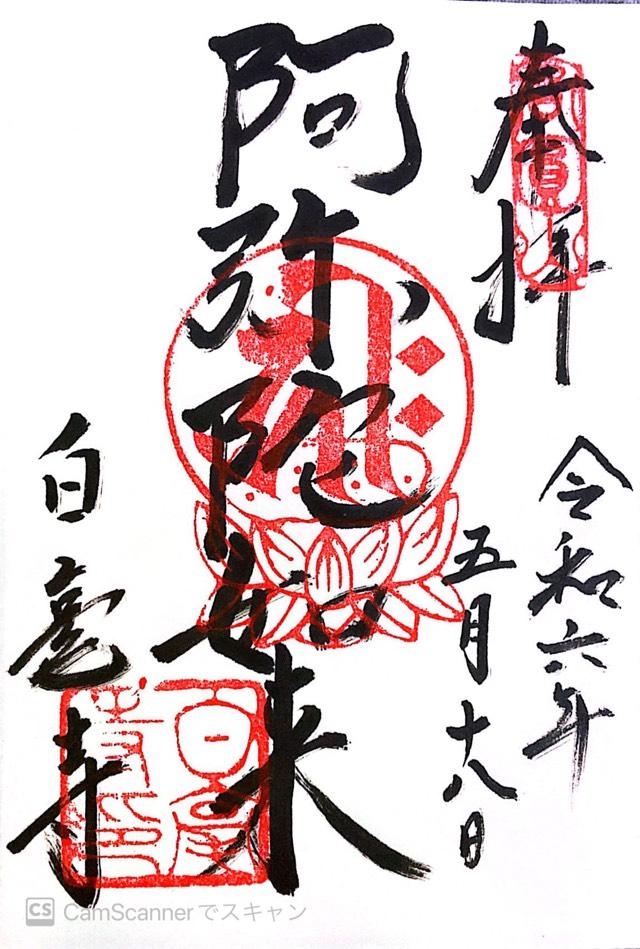 奉拝
令和六年
五月十八日
阿弥陀如来
白毫寺
CS CamScannerでスキャン